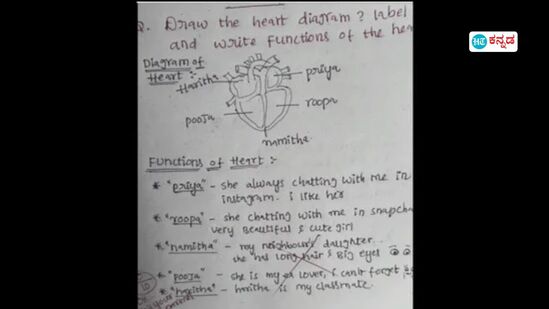 Q. Draw the heart diagram? label
and write functions of the hea
HT ಕನ್ನಡ
Diagram of
Heart :-
Haritha
priya
roopa
pooja
namitha
Functions of Heart :-
* "priya" - she always chatting with me in
instagram. i like her
* "roopa" - she chatting with me in snapcha
very beautiful & cute girl
* "namitha" - my neighbour's daughter...
she has long hair & Big eyes
* "pooja" - she is my lover, i can't forget
* "haritha" - haritha is my classmate.
10